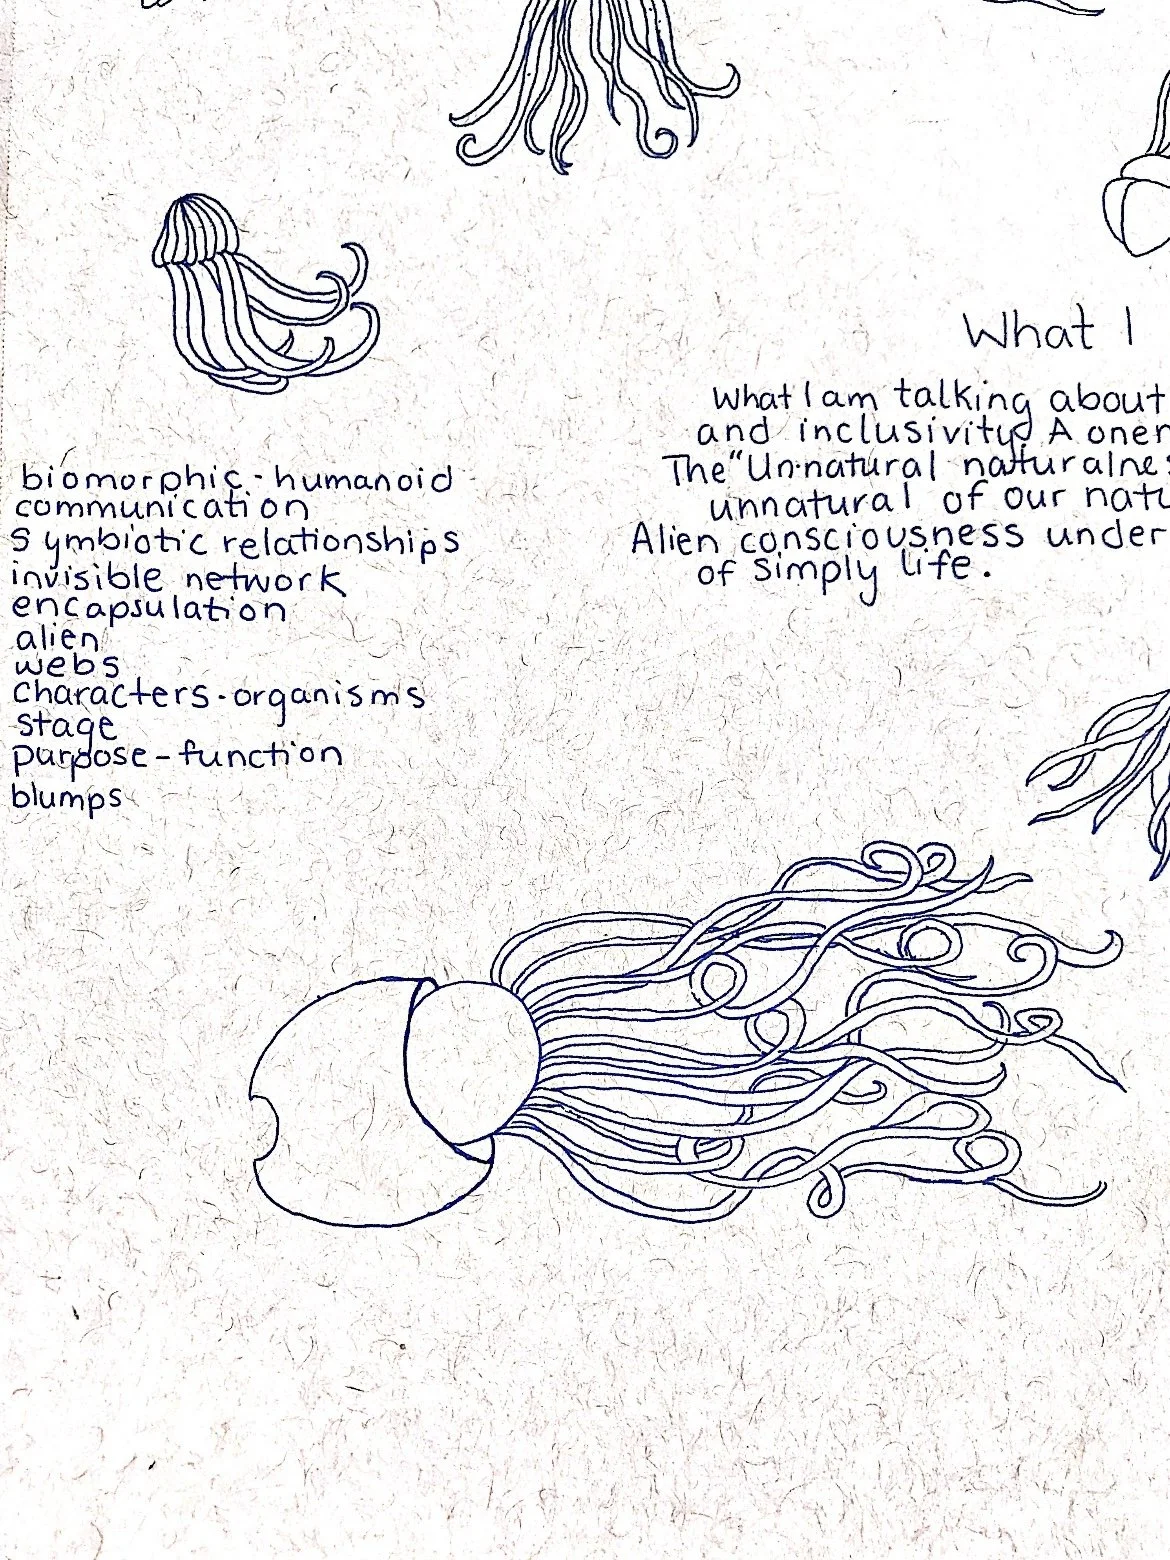 What I
What I am talking about
and inclusivity. A oner
The "Un·natural naturalne
unnatural of our natu
Alien consciousness under
of simply life.
biomorphic - humanoid
communication
symbiotic relationships
invisible network
encapsulation
alien
webs
characters - organisms
stage
purpose - function
blumps